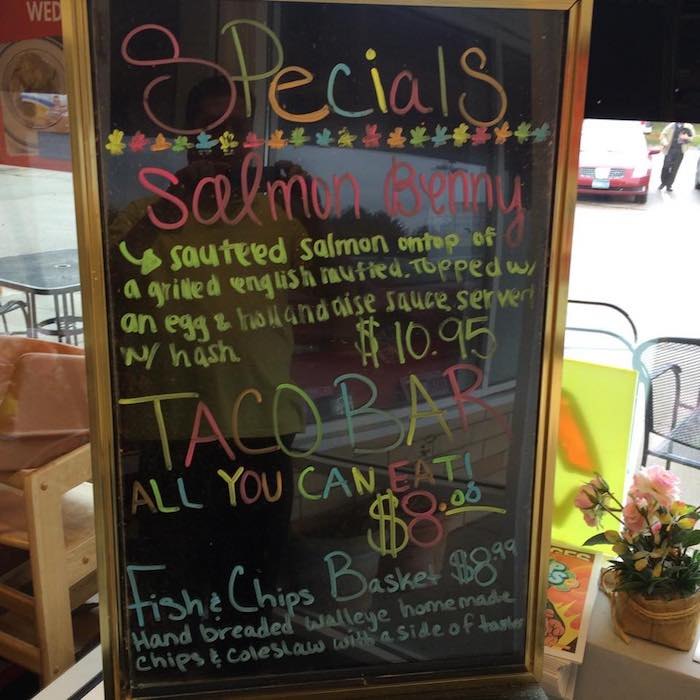 WED
Specials
Salmon Benny
↳ sauteed salmon ontop of
a grilled english muffied. Topped w/
an egg & hollandaise sauce server
w/ hash $10.95
TACO BAR
ALL YOU CAN EAT!
$8.00
Fish & Chips Basket $8.99
Hand breaded walleye homemade
chips & coleslaw with a side of tarter